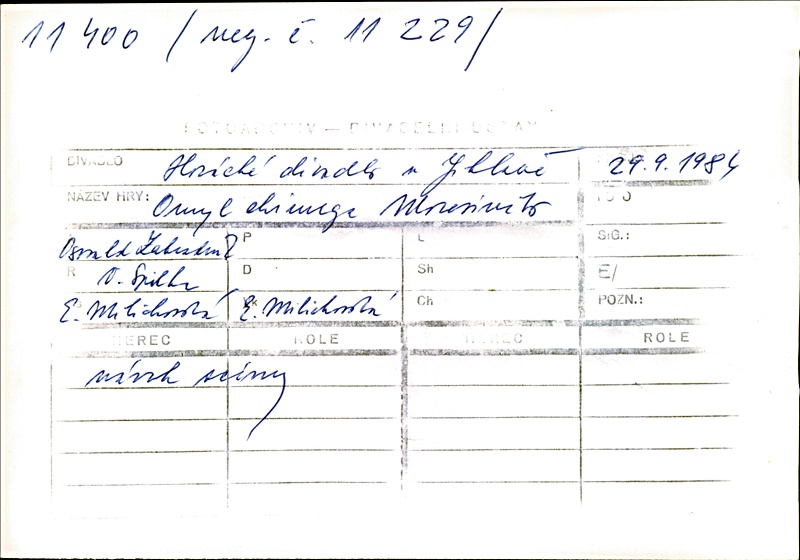 11 400 / neg. č. 11 229/
FOTOARCHIV — DIVADELNÍ ÚSTAV
DIVADLO Horácké divadlo v Jihlavě 29.9.1984
NÁZEV HRY: Omyl chirurga Moresiniho
Osvald Zahradník P L SIG.:
R V. Spilka D Sh E/
E. Milichovská Vk E. Milichovská Ch POZN.:
HEREC ROLE HEREC ROLE
návrh scény